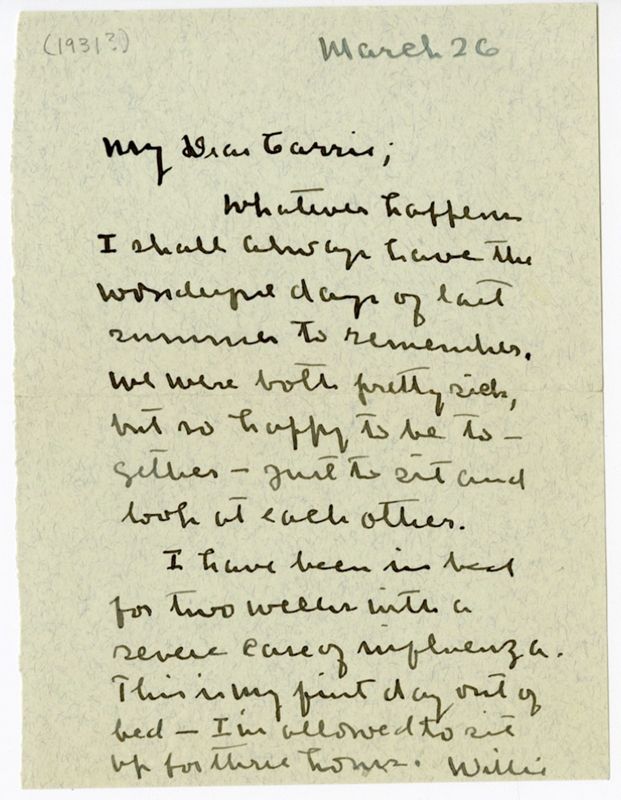 (1931?)
March 26
My Dear Carrie;
Whatever happens
I shall always have the
wonderful days of last
summer to remember.
We were both pretty sick,
but so happy to be to-
gether - just to sit and
look at each other.
I have been in bed
for two weeks with a
severe case of influenza.
This is my first day out of
bed - I'm allowed to sit
up for three hours. Willie